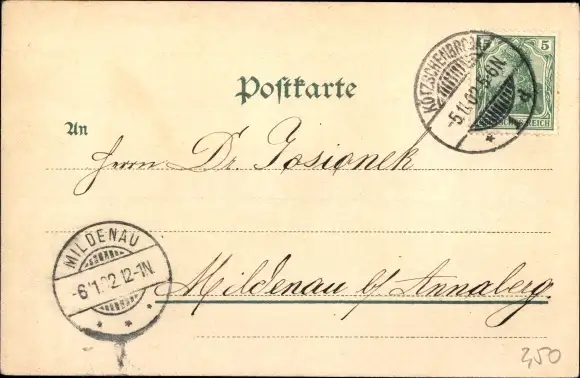 Postkarte
5
KÖTZSCHENBRODA
-5.11.02.5-6N
REICH
An
Herrn Dr. Josionek
MILDENAU
-6.11.02.12-1N
Mildenau b/ Annaberg.
2,50